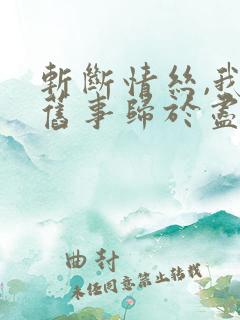 斬斷情絲,我
舊事歸於盡
曲封
未經同意禁止轉載